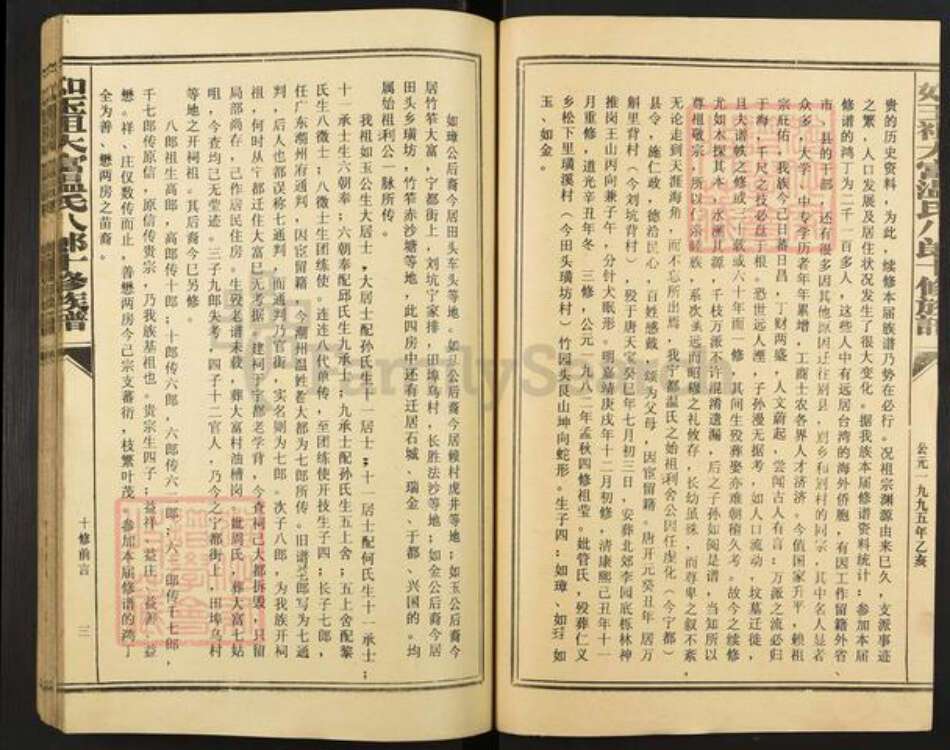 贵的历史资料,为此,续修本届族谱乃势在必行。况祖宗渊源由来已久,支派事迹
之繁,人口发展及居住状况发生了很大变化。据我族本届修谱资料统计:参加本届
修谱的鸿丁为二千一百多人,这些人中有远居台湾的海外侨胞,有因工作留籍外省、
市、县的干部,还有很多因其他原因迁往别县,别乡和别村的同宗,其中名人显者
众多,大学、中专学历者年年累增,工商士农各界人才济济。今值国家升平,赖祖
宗庇佑,我族今已日蕃日昌,丁财两盛,人文蔚起,尝闻古人有言:万派之流必归
于海,千尺之技必盘于根,恐世远人湮,子孙漫无据考,如人口流动,坟墓迁徙,
且大谱帙之修或三十载或六十年而一修,其间生殁葬娶亦难朝稽久考。故今之续修
尤如木探其本,水溯其源,千枝万派不许混淆遗漏,后之子孙如阅是谱,当知所以
尊祖敬宗,所以仁亲睦族,系次虽远而昭穆之礼攸存,长幼虽殊,而尊卑之叙不紊,
无论走到天涯海角,而不忘所出焉,我宁都温氏之始祖利舍公因任虔化(今宁都)
县令,施仁政,德洽民心,百姓感戴,颂为父母,因宦留籍。唐开元癸丑年居万
斛里背村(今刘坑背村),殁于唐天宝癸巳年七月初三日,安葬北郊李园底栎林神
推岗王山丙向兼子午,分针大眠形。明嘉靖庚戌年十二月初修,清康熙己丑年十一
月重修,道光辛丑年冬三修,公元一九八二年孟秋四修祖茔。妣管氏,殁葬仁义
乡松下里璜溪村(今田头璜坊村)竹园头艮山坤向蛇形。生子四:如璋、如玨、如
玉、如金。
公元一九九五年乙亥
如璋公后裔今居田头车头等地。如玨公后裔今居赖村虎井等地;如玉公后裔今
居竹笮大富,宁都街上,刘坑宁家排,田埠乌村,长胜法沙等地;如金公后裔今居
田头乡璜坊,竹笮赤沙塘等地,此四房中还有迁居石城、瑞金、于都、兴国的。均
属始祖利公一脉所传。
我祖如玉公生大居士,大居士配孙氏生十一居士;十一居士配何氏生十一承士;
十一承士生六朝奉;六朝奉配邱氏生九承士;九承士配孙氏生五上舍;五上舍配黎
氏生八微士;八微士生团练使。连连八代单传,至团练使开技生子四:长子七郎,
任广东潮州府通判,因宦留籍,今潮州温姓者大都为七郎所传。旧谱 七郎写为七通
判,后人也都误称七通判,而通判乃官衔,实名则为七郎。次子八郎,为我族开祠
祖,何时从宁都迁住大富已无考据,建祠于宁都老学背,今查祠已大都拆毁,只留
局部尚存,已作居民住房。生殁老谱未载,葬大富村油槽岗。妣周氏,葬大富七姑
咀,今查均已无茔迹。三子九郎失考,四子十二官人,乃今之宁都街上,田埠乌村
等地之开祠祖。其后裔今已另修。
八郎祖生高郎,高郎传十郎;十郎传六郎,六郎传六一郎;六一郎传千七郎,
千七郎传原信,原信传贵宗,乃我族基祖也。贵宗生四子:益祥、益庄、益善、益
懋。祥、庄仅数传而止,善懋两房今已宗支蕃衍,枝繁叶茂,参加本届修谱的鸿丁
全为善、懋两房之苗裔。
十修前言
三